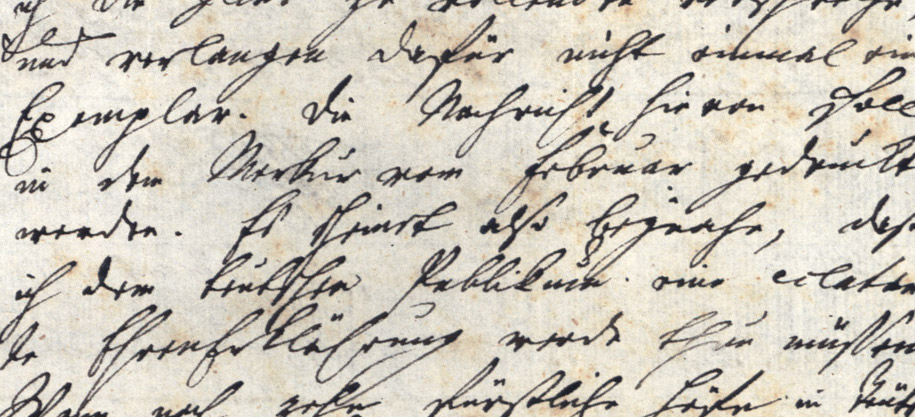 ich die
und verlangen dafür nicht einmal ein
Exemplar. Die Nachricht hievon soll
in dem Merkur vom Februar gedruckt
werden. Es scheint also beynahe, daß
ich dem teutschen Publikum eine eclatan
te EhrenErklährung werde thun müssen
Wenn noch zehn Fürstliche Höfe in